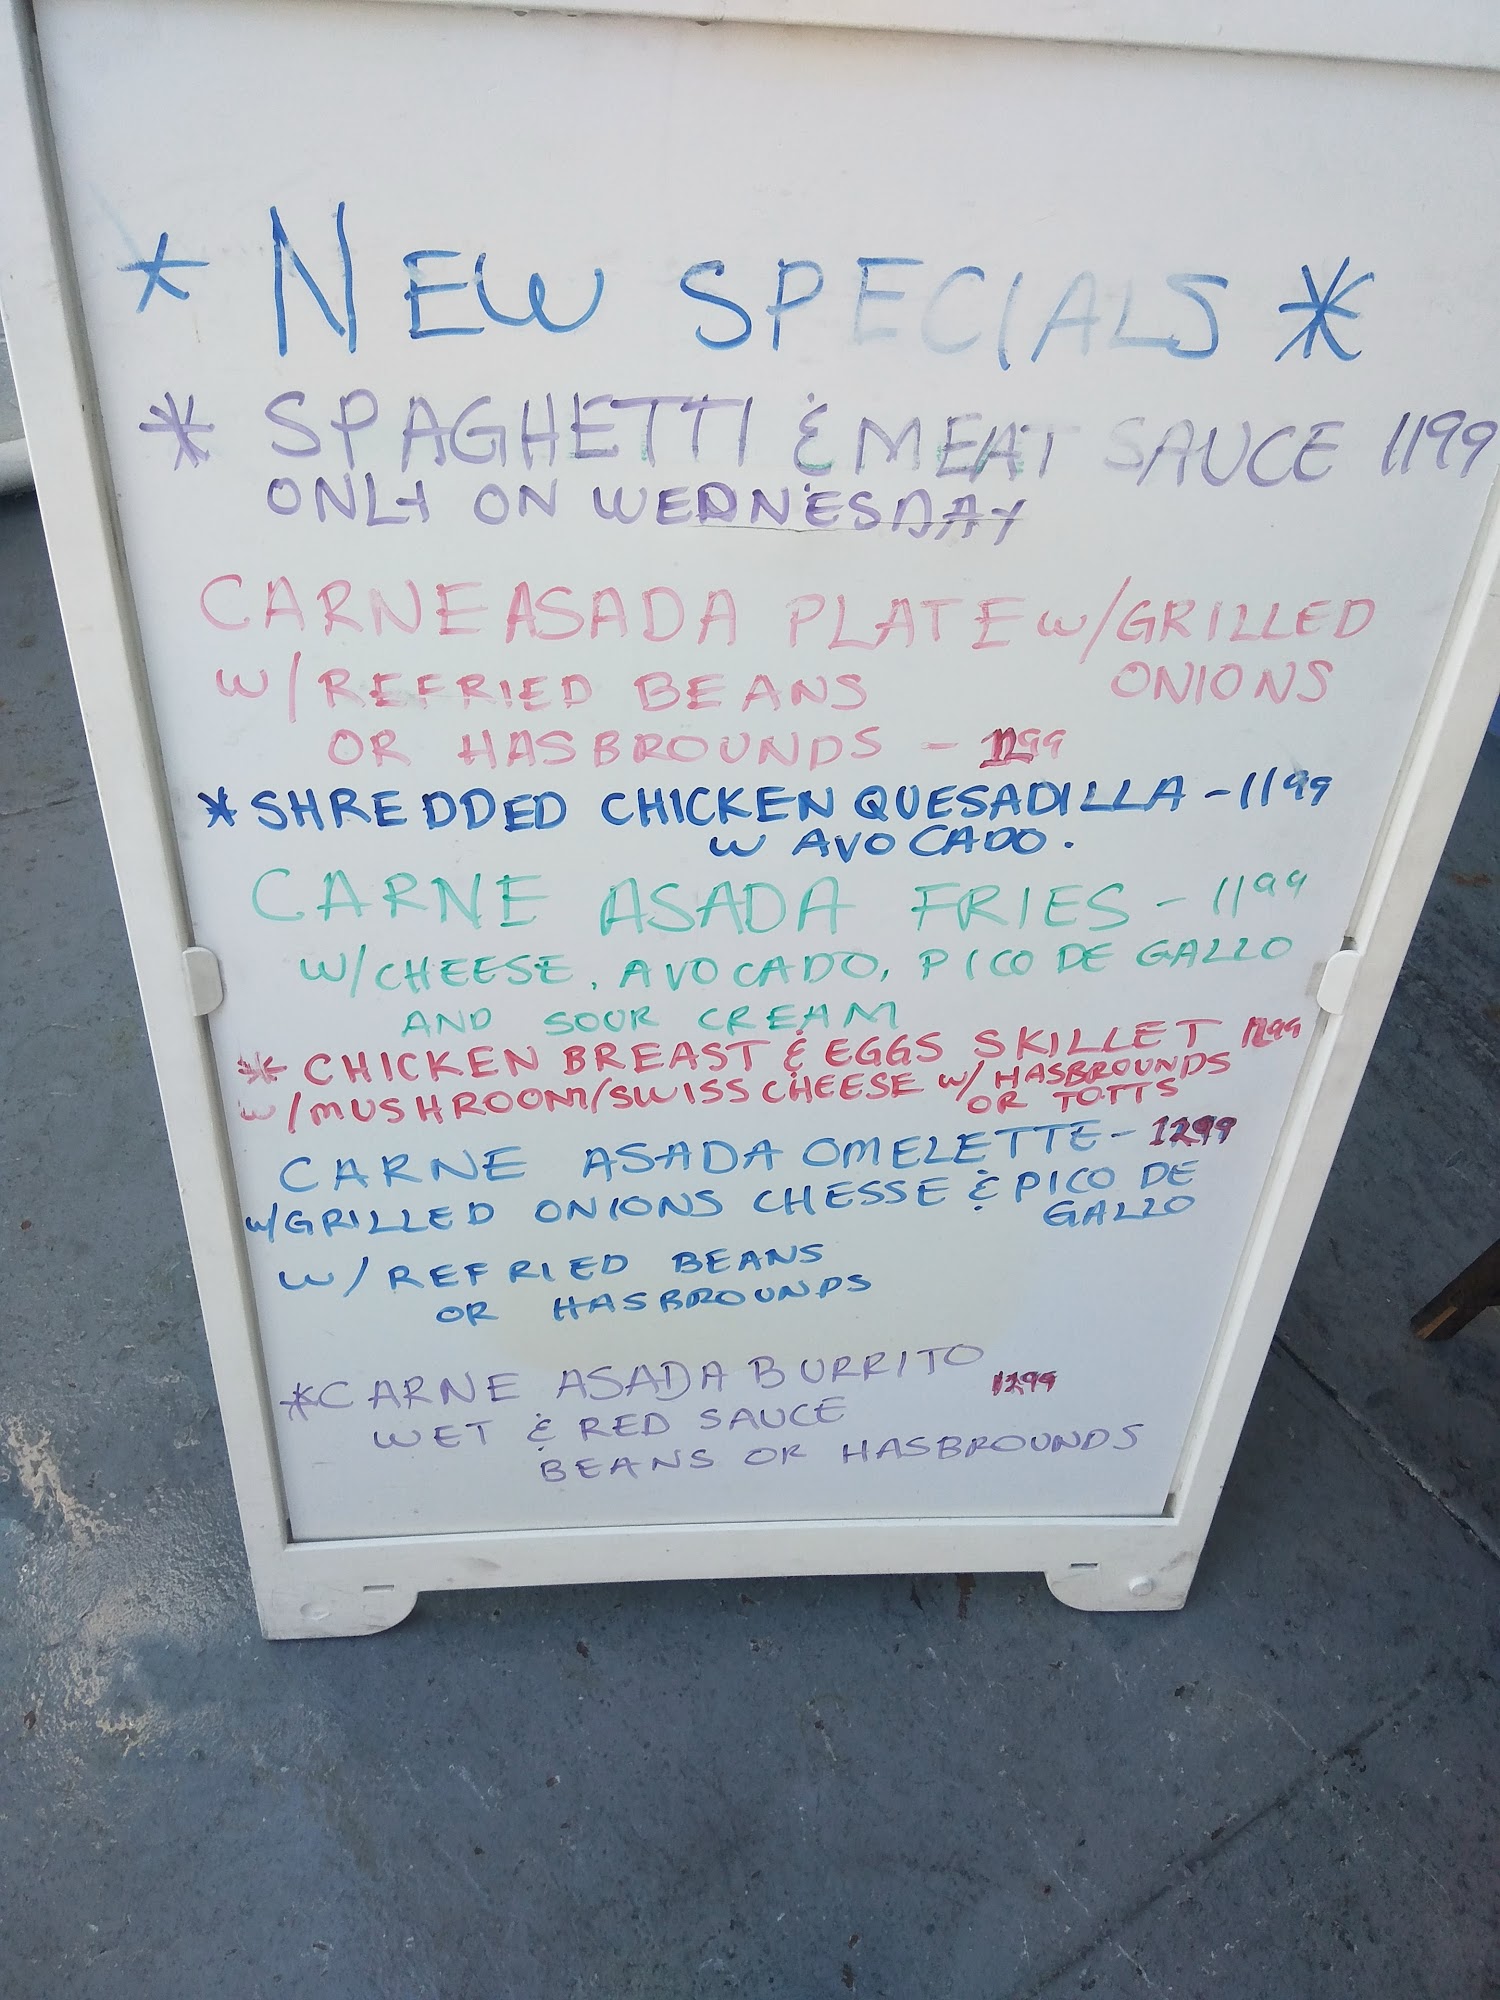 * NEW SPECIALS *
* SPAGHETTI & MEAT SAUCE 1199
ONLY ON WEDNESDAY
CARNE ASADA PLATE W/GRILLED
W/REFRIED BEANS ONIONS
OR HASBROUNDS -
*SHREDDED CHICKEN QUESADILLA - 1199
W AVOCADO.
CARNE ASADA FRIES - 1199
W/CHEESE, AVOCADO, PICO DE GALLO
AND SOUR CREAM
* CHICKEN BREAST & EGGS SKILLET
W/MUSHROOM/SWISS CHEESE W/ HASBROUNDS
OR TOTTS
CARNE ASADA OMELETTE - 1299
W/GRILLED ONIONS CHESSE & PICO DE
GALLO
W/REFRIED BEANS
OR HASBROUNDS
*CARNE ASADA BURRITO 1299
WET & RED SAUCE
BEANS OR HASBROUNDS